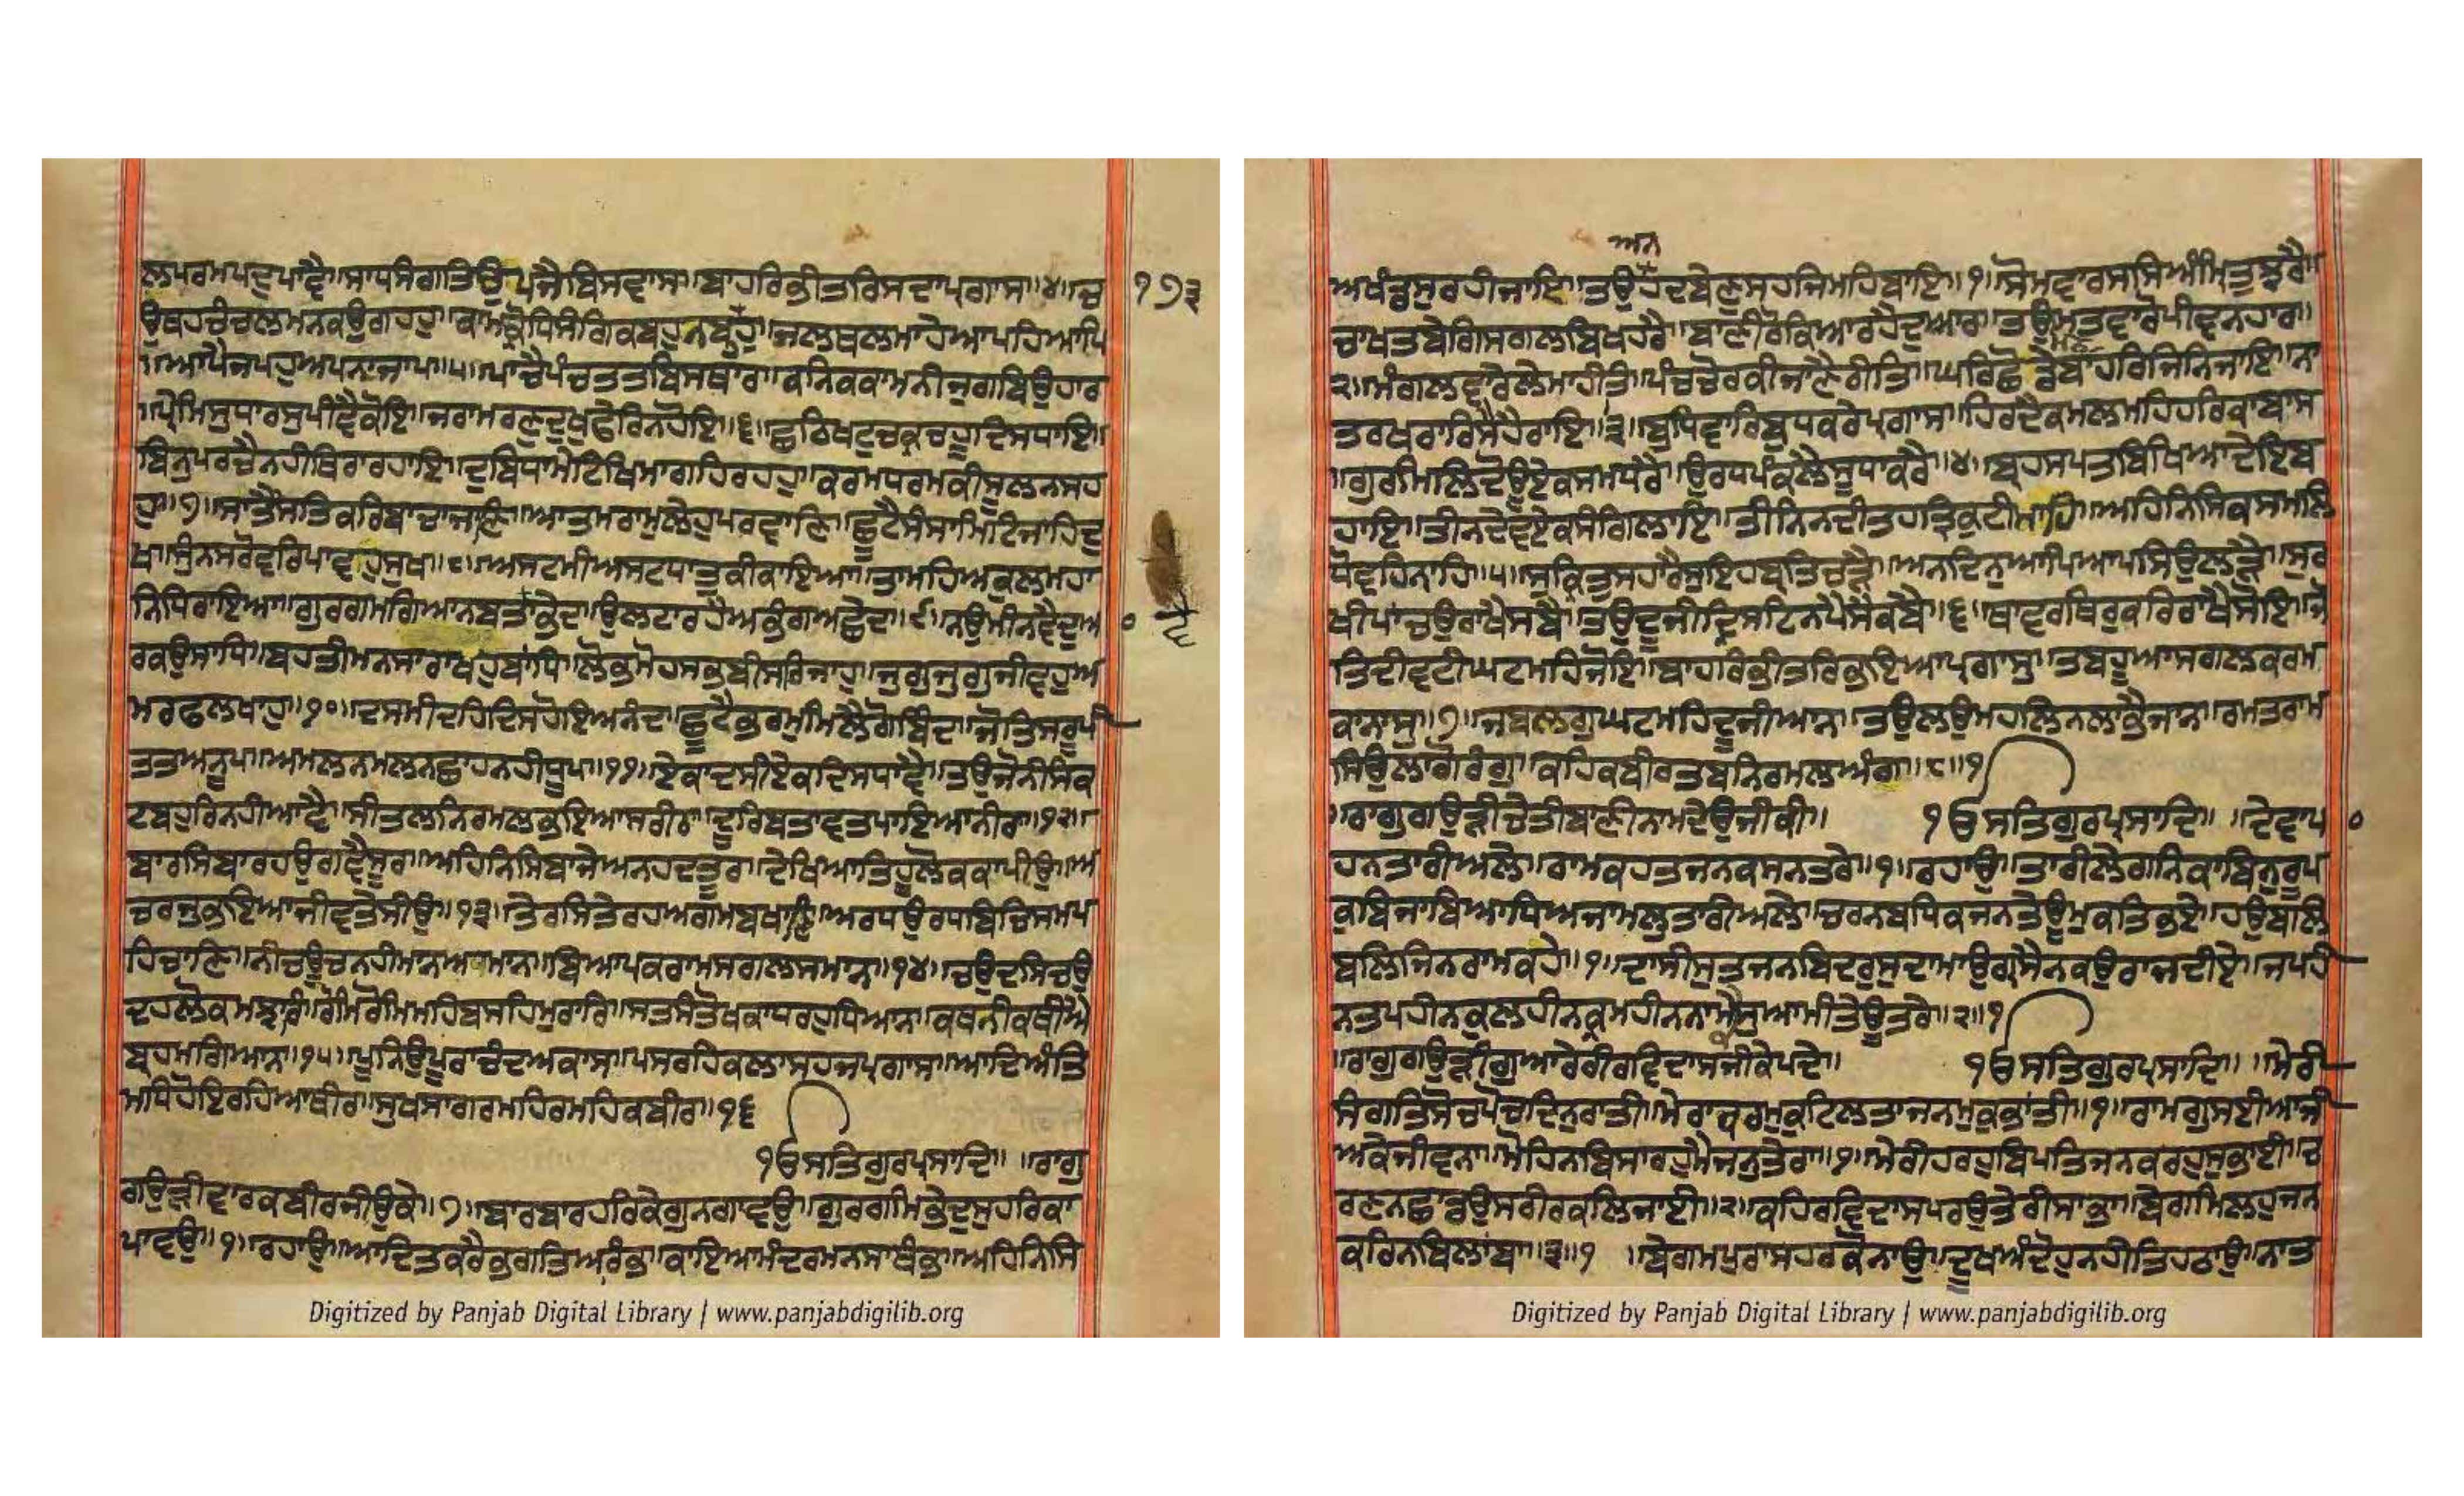 ਲਪਰਮਪਦਪਾਵੈ॥ਸਾਧਸੰਗਤਿਉਪਜੈਬਿਸਵਾਸ॥ਬਾਹਰਿਭੀਤਰਿਸਦਾਪ੍ਰਗਾਸ॥੪॥ਚ
੧੭੩
ਉਥਹਚੰਚਲਮਨਕਉਗਹਹੁ॥ਕਾਮਕ੍ਰੋਧਸੰਗਿਕਬਹੁਨਬਹਹੁ॥ਜਲਥਲਮਾਹੇਆਪਹਿਆਪਿ
॥ਆਪੈਜਪਹੁਅਪਨਾਜਾਪ॥੫॥ਪਾਂਚੈਪੰਚਤਤਬਿਸਥਾਰ॥ਕਨਿਕਕਾਮਨੀਜੁਗਬਿਉਹਾਰ
॥ਪ੍ਰੇਮਸੁਧਾਰਸੁਪੀਵੈਕੋਇ॥ਜਰਾਮਰਣਦੁਖੁਫੇਰਿਨਹੋਇ॥੬॥ਛਠਿਖਟੁਚਕ੍ਰਚਹੂਦਿਸਧਾਇ॥
ਬਿਨੁਪਰਚੈਨਹੀਥਿਰਾਰਹਾਇ॥ਦੁਬਿਧਾਮੇਟਿਖਿਮਾਗਹਿਰਹਹੁ॥ਕਰਮਧਰਮਕੀਸੂਲਨਸਹ
ਹੁ॥੭॥ਸਾਤੈਂਸਤਿਕਰਿਬਾਚਾਜਾਣਿ॥ਆਤਮਰਾਮੁਲੇਹੁਪਰਵਾਣਿ॥ਛੂਟੈਸੰਸਾਮਿਟਿਜਾਹਿਦੁ
ਖ॥ਸੁੰਨਸਰੋਵਰਿਪਾਵਹੁਸੁਖ॥੮॥ਅਸਟਮੀਅਸਟਧਾਤੁਕੀਕਾਇਆ॥ਤਾਮਹਿਅਕੁਲਮਹਾ
ਨਿਧਿਰਾਇਆ॥ਗੁਰਗਮਗਿਆਨਬਤਾਵੈਭੇਦ॥ਉਲਟਾਰਹੈਅਭੰਗਅਛੇਦ॥੯॥ਨਉਮੀਨਵੈਦੁਆ
੦
ਰਕਉਸਾਧਿ॥ਬਹਤੀਮਨਸਾਰਾਖਹੁਬਾਂਧਿ॥ਲੋਭਮੋਹਸਭਬੀਸਰਿਜਾਹੁ॥ਜੁਗੁਜੁਗੁਜੀਵਹੁਅ
ਮਰਫਲਖਾਹੁ॥੧੦॥ਦਸਮੀਦਹਦਿਸਹੋਇਅਨੰਦ॥ਛੂਟੈਭਰਮੁਮਿਲੈਗੋਬਿੰਦ॥ਜੋਤਿਸਰੂਪੀ
ਤਤਅਨੂਪ॥ਅਮਲਨਮਲਨਛਾਹਨਹੀਧੂਪ॥੧੧॥ਏਕਾਦਸੀਏਕਦਿਸਧਾਵੈ॥ਤਉਜੋਨੀਸੰਕ
ਟਬਹੁਰਿਨਹੀਆਵੈ॥ਸੀਤਲਨਿਰਮਲਭਇਆਸਰੀਰਾ॥ਦੂਰਿਬਤਾਵਤਪਾਇਆਨੀਰਾ॥੧੨॥
ਬਾਰਸਿਬਾਰਹਉਗਵੈਸੂਰ॥ਅਹਿਨਿਸਿਬਾਜੇਅਨਹਦਤੂਰ॥ਦੇਖਿਆਤਿਹੂੰਲੋਕਕਾਪੀਉ॥ਅ
ਚਰਜੁਭਇਆਜੀਵਤੇਸੀਉ॥੧੩॥ਤੇਰਸਿਤੇਰਹਅਗਮਬਖਾਣਿ॥ਅਰਧਉਰਧਬਿਚਿਸਮਪ
ਹਿਚਾਣਿ॥ਨੀਚਊਚਨਹੀਮਾਨਅਮਾਨ॥ਬਿਆਪਕਰਾਮਸਗਲਸਮਾਨ॥੧੪॥ਚਉਦਸਿਚਉ
ਦਹਲੋਕਮਝਾਰਿ॥ਰੋਮਰੋਮਮਹਿਬਸਹਿਮੁਰਾਰਿ॥ਸਤਸੰਤੋਖਕਾਧਰਹੁਧਿਆਨ॥ਕਥਨੀਕਥੀਐ
ਬ੍ਰਹਮਗਿਆਨ॥੧੫॥ਪੂਨਿਉਪੂਰਾਚੰਦਅਕਾਸ॥ਪਸਰਹਿਕਲਾਸਹਜਪ੍ਰਗਾਸ॥ਆਦਿਅੰਤਿ
ਮਧਿਹੋਇਰਹਿਆਥੀਰ॥ਸੁਖਸਾਗਰਮਹਿਰਮਹਿਕਬੀਰ॥੧੬
ੴਸਤਿਗੁਰਪ੍ਰਸਾਦਿ॥ ॥ਰਾਗੁ
ਗਉੜੀਵਾਰਕਬੀਰਜੀਉਕੇ॥੭॥ਬਾਰਬਾਰਹਰਿਕੇਗੁਨਗਾਵਉ॥ਗੁਰਗਮਿਭੇਦੁਸੁਹਰਿਕਾ
ਪਾਵਉ॥੧॥ਰਹਾਉ॥ਆਦਿਤਕਰੈਭਗਤਿਅਰੰਭ॥ਕਾਇਆਮੰਦਰਮਨਸਾਥੰਭ॥ਅਹਿਨਿਸਿ
Digitized by Panjab Digital Library | www.panjabdigilib.org
ਅਨ
ਅਖੰਡਸੁਰਹੀਜਾਇ॥ਤਉਹਦਬੇਣੁਸਹਜਮਹਿਬਾਇ॥੧॥ਸੋਮਵਾਰਸਸਿਅੰਮ੍ਰਿਤੁਝਰੈ॥
ਚਾਖਤਬੇਗਿਸਗਲਬਿਖਹਰੈ॥ਬਾਣੀਰੋਕਿਆਰਹੈਦੁਆਰ॥ਤਉਮਤਵਾਰੋਪੀਵਨਹਾਰ॥
੨॥ਮੰਗਲਵਾਰੇਲੇਮਾਹੀਤਿ॥ਪੰਚਚੋਰਕੀਜਾਣੈਰੀਤਿ॥ਘਰਛੋਡੇਬਾਹਰਿਜਿਨਿਜਾਇ॥ਨਾ
ਤਰਖਰਾਰਿਸੈਹੈਰਾਇ॥੩॥ਬੁਧਵਾਰਿਬੁਧਕਰੇਪ੍ਰਗਾਸ॥ਹਿਰਦੈਕਮਲਮਹਿਹਰਿਕਾਬਾਸ
॥ਗੁਰਮਿਲਿਦੋਊਏਕਸਮਧਰੈ॥ਉਰਧਪੰਕਲੈਸੂਧਾਕਰੈ॥੪॥ਬ੍ਰਹਸਪਤਿਬਿਖਿਆਦੇਇਬ
ਹਾਇ॥ਤੀਨਦੇਵਏਕਸੰਗਿਲਾਇ॥ਤੀਨਿਨਦੀਤਹਤ੍ਰਿਕੁਟੀਮਾਹਿ॥ਅਹਿਨਿਸਿਕਸਮਲ
ਧੋਵਹਿਨਾਹਿ॥੫॥ਸੁਕ੍ਰਿਤੁਸਹਾਰੈਸੁਇਹਬ੍ਰਤਿਚੜੈ॥ਅਨਦਿਨੁਆਪਿਆਪਸਿਉਲੜੈ॥ਸੁਰ
ਖੀਪਾਂਚਉਰਾਖੈਸਬੈ॥ਤਉਦੂਜੀਦ੍ਰਿਸਟਿਨਪੈਸੈਕਬੈ॥੬॥ਥਾਵਰਥਿਰੁਕਰਿਰਾਖੈਸੋਇ॥ਜੋ
ਤਿਦੀਵਟੀਘਟਮਹਿਜੋਇ॥ਬਾਹਰਿਭੀਤਰਿਭਇਆਪ੍ਰਗਾਸੁ॥ਤਬਹੂਆਸਗਲਕਰਮ
ਕਾਨਾਸੁ॥੭॥ਜਬਲਗੁਘਟਮਹਿਦੂਜੀਆਨ॥ਤਉਲਉਮਹਲਿਨਲਾਭੈਜਾਨ॥ਰਮਤਰਾਮ
ਸਿਉਲਾਗੋਰੰਗੁ॥ਕਹਿਕਬੀਰਤਬਨਿਰਮਲਅੰਗ॥੮॥੧
॥ਰਾਗੁਗਉੜੀਚੇਤੀਬਾਣੀਨਾਮਦੇਉਜੀਕੀ॥ ੴਸਤਿਗੁਰਪ੍ਰਸਾਦਿ॥ ॥ਦੇਵਾਪਾ
੦
ਹਨਤਾਰੀਅਲੇ॥ਰਾਮਕਹਤਜਨਕਸਨਤਰੇ॥੧॥ਰਹਾਉ॥ਤਾਰੀਲੇਗਨਿਕਾਬਿਨੁਰੂਪ
ਕੁਬਿਜਾਬਿਆਧਿਅਜਾਮਲੁਤਾਰੀਅਲੇ॥ਚਰਨਬਧਿਕਜਨਤੇਊਮੁਕਤਿਭਏ॥ਹਉਬਲਿ
ਬਲਿਜਿਨਰਾਮਕਹੇ॥੧॥ਦਾਸੀਸੁਤਜਨਬਿਦਰੁਸੁਦਾਮਾਉਗ੍ਰਸੈਨਕਉਰਾਜਦੀਏ॥ਜਪਹੀ
ਨਤਪਹੀਨਕੁਲਹੀਨਕ੍ਰਮਹੀਨਨਾਮੇਸੁਆਮੀਤੇਊਤਰੇ॥੨॥੧
॥ਰਾਗੁਗਉੜੀਗੁਆਰੇਰੀਰਵਿਦਾਸਜੀਕੇਪਦੇ॥ ੴਸਤਿਗੁਰਪ੍ਰਸਾਦਿ॥ ॥ਮੇਰੀ
ਸੰਗਤਿਸੋਚਪੋਚਦਿਨੁਰਾਤੀ॥ਮੇਰਾਕਰਮੁਕੁਟਿਲਤਾਜਨਮੁਕੁਭਾਂਤੀ॥੧॥ਰਾਮਗੁਸਈਆਜੀ
ਅਕੇਜੀਵਨਾ॥ਮੋਹਿਨਬਿਸਾਰਹੁਮੈਜਨੁਤੇਰਾ॥੧॥ਮੇਰੀਹਰਹੁਬਿਪਤਿਜਨਕਰਹੁਸੁਭਾਈ॥ਚ
ਰਣਨਛਾਡਉਸਰੀਰਕਲਜਾਈ॥੨॥ਕਹਿਰਵਿਦਾਸਪਰਉਤੇਰੀਸਾਭਾ॥ਬੇਗਿਮਿਲਹੁਜਨ
ਕਰਿਨਬਿਲਾਂਬਾ॥੩॥੧ ॥ਬੇਗਮਪੁਰਾਸਹਰਕੋਨਾਉ॥ਦੂਖਅੰਦੋਹੁਨਹੀਤਿਹਠਾਉ॥ਨਾਤ
Digitized by Panjab Digital Library | www.panjabdigilib.org